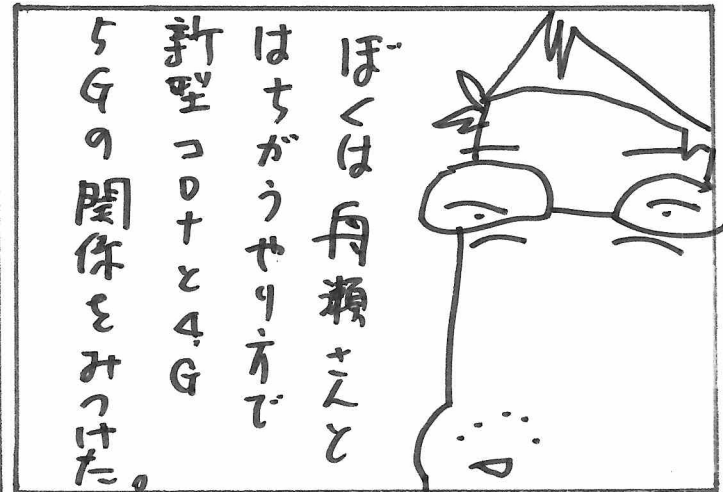 ぼくは舟瀬さんと
はちがうやり方で
新型コロナと4G
5Gの関係をみつけた。